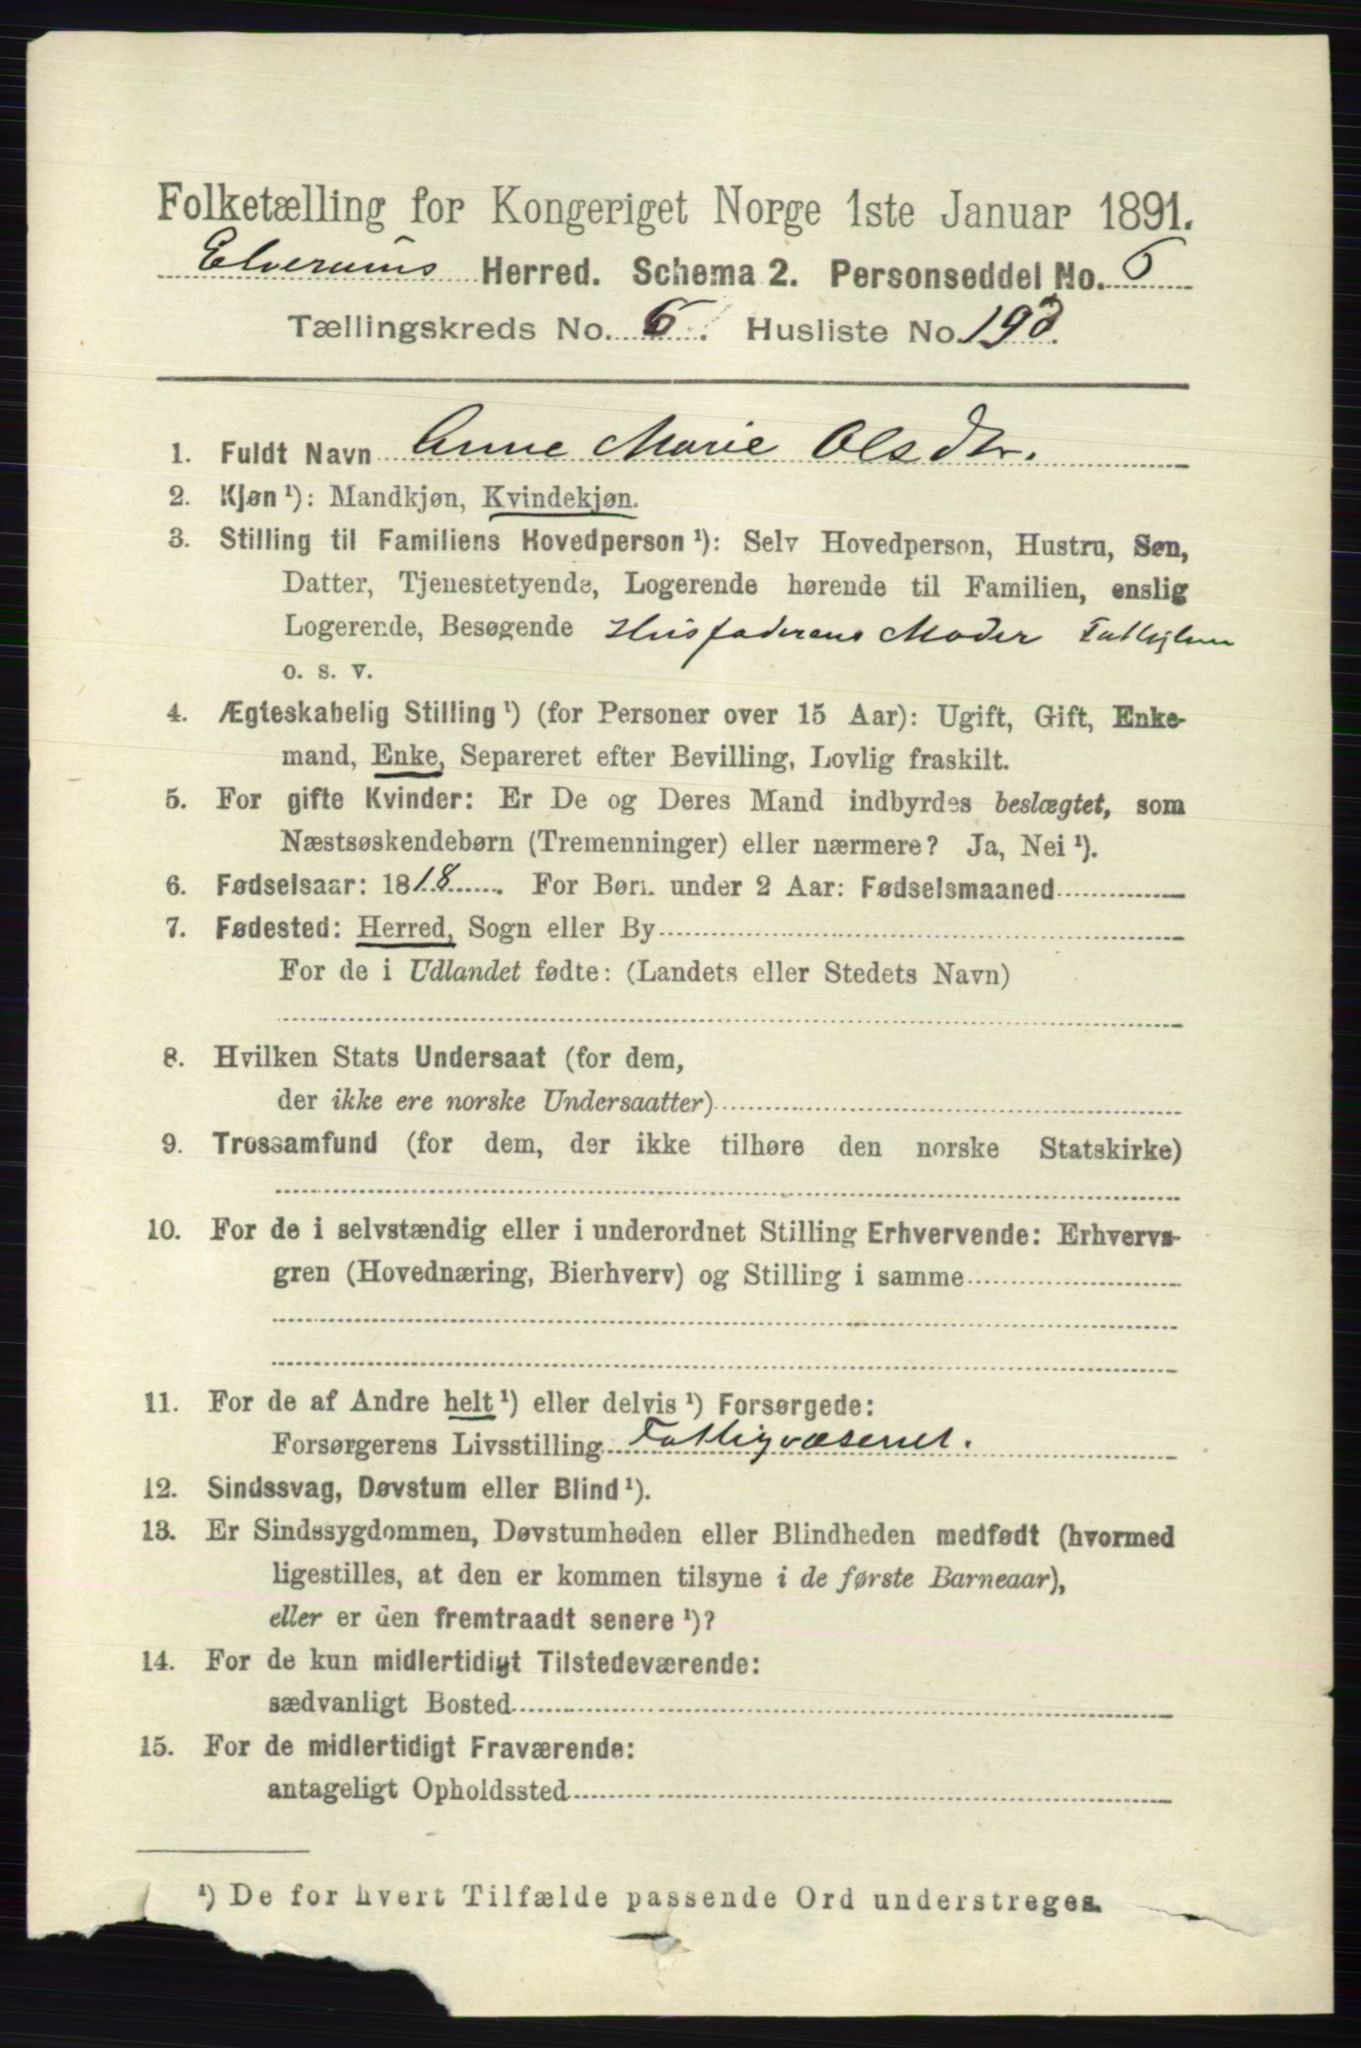 Folketælling for Kongeriget Norge 1ste Januar 1891.
Elverums Herred. Schema 2. Personseddel No. 6
Tællingskreds No. 6. Husliste No. 193.
1. Fuldt Navn Anne Marie Olsdtr.
2. Kjøn ¹): Mandkjøn, Kvindekjøn.
3. Stilling til Familiens Hovedperson ¹): Selv Hovedperson, Hustru, Søn,
Datter, Tjenestetyende, Logerende hørende til Familien, enslig
Logerende, Besøgende Husfaderens Moder
o. s. v.
4. Ægteskabelig Stilling ¹) (for Personer over 15 Aar): Ugift, Gift, Enke-
mand, Enke, Separeret efter Bevilling, Lovlig fraskilt.
5. For gifte Kvinder: Er De og Deres Mand indbyrdes beslægtet, som
Næstsøskendebørn (Tremenninger) eller nærmere? Ja, Nei ¹).
6. Fødselsaar: 1818. For Børn under 2 Aar: Fødselsmaaned
7. Fødested: Herred, Sogn eller By
For de i Udlandet fødte: (Landets eller Stedets Navn)
8. Hvilken Stats Undersaat (for dem,
der ikke ere norske Undersaatter)
9. Trossamfund (for dem, der ikke tilhøre den norske Statskirke)
10. For de i selvstændig eller i underordnet Stilling Erhvervende: Erhvervs-
gren (Hovednæring, Bierhverv) og Stilling i samme
11. For de af Andre helt ¹) eller delvis ¹) Forsørgede:
Forsørgerens Livsstilling Fattigvæsenet.
12. Sindssvag, Døvstum eller Blind ¹).
13. Er Sindssygdommen, Døvstumheden eller Blindheden medfødt (hvormed
ligestilles, at den er kommen tilsyne i de første Barneaar),
eller er den fremtraadt senere ¹)?
14. For de kun midlertidigt Tilstedeværende:
sædvanligt Bosted
15. For de midlertidigt Fraværende:
antageligt Opholdssted
¹) De for hvert Tilfælde passende Ord understreges.